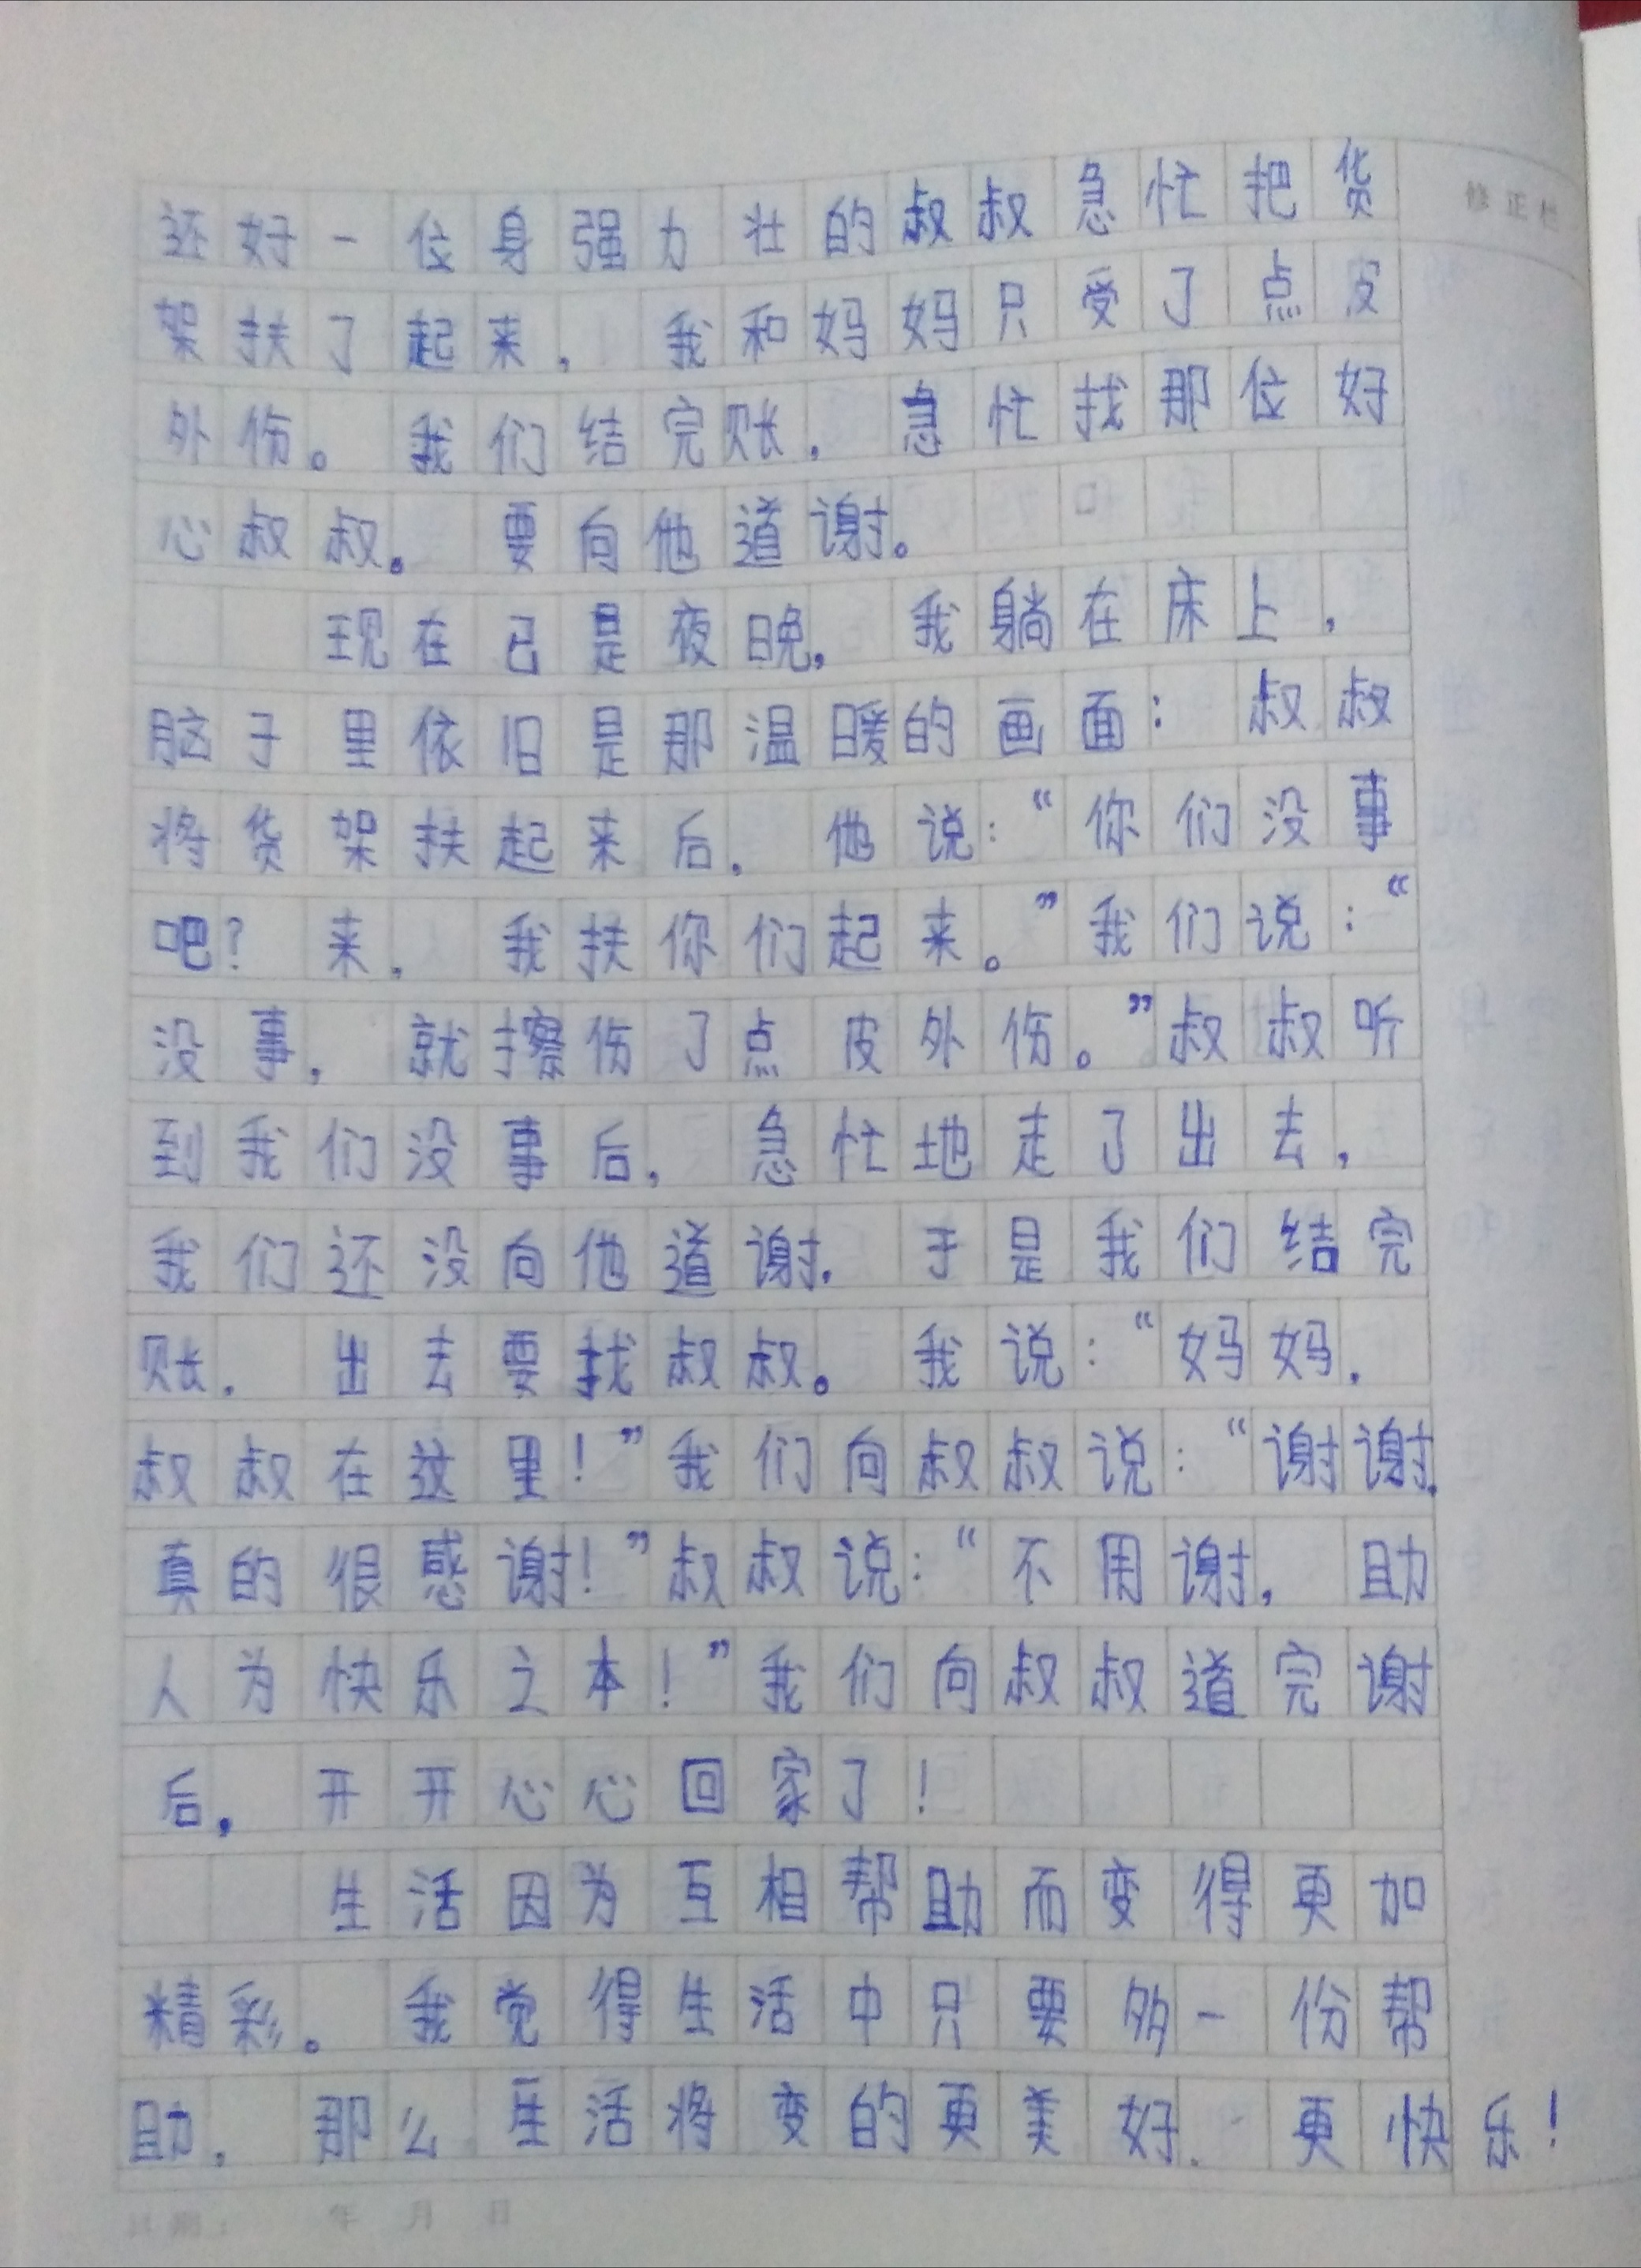 修正栏
还好一位身强力壮的叔叔急忙把货
架扶了起来，我和妈妈只受了点皮
外伤。我们结完账，急忙找那位好
心叔叔。要向他道谢。
现在已是夜晚，我躺在床上，
脑子里依旧是那温暖的画面：叔叔
将货架扶起来后，他说：“你们没事
吧？来，我扶你们起来。”我们说：“
没事，就擦伤了点皮外伤。”叔叔听
到我们没事后，急忙地走了出去，
我们还没向他道谢，于是我们结完
账，出去要找叔叔。我说：“妈妈，
叔叔在这里！”我们向叔叔说：“谢谢，
真的很感谢！”叔叔说：“不用谢，助
人为快乐之本！”我们向叔叔道完谢
后，开开心心回家了！
生活因为互相帮助而变得更加
精彩。我觉得生活中只要多一份帮
助，那么生活将变的更美好，更快乐！
日期： 年 月 日